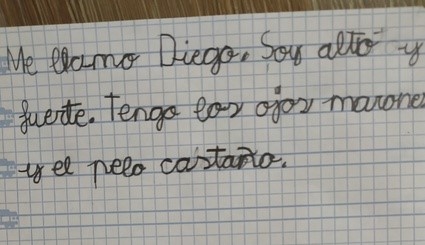 Me llamo Diego. Soy alto y
fuerte. Tengo los ojos marones
y el pelo castaño.